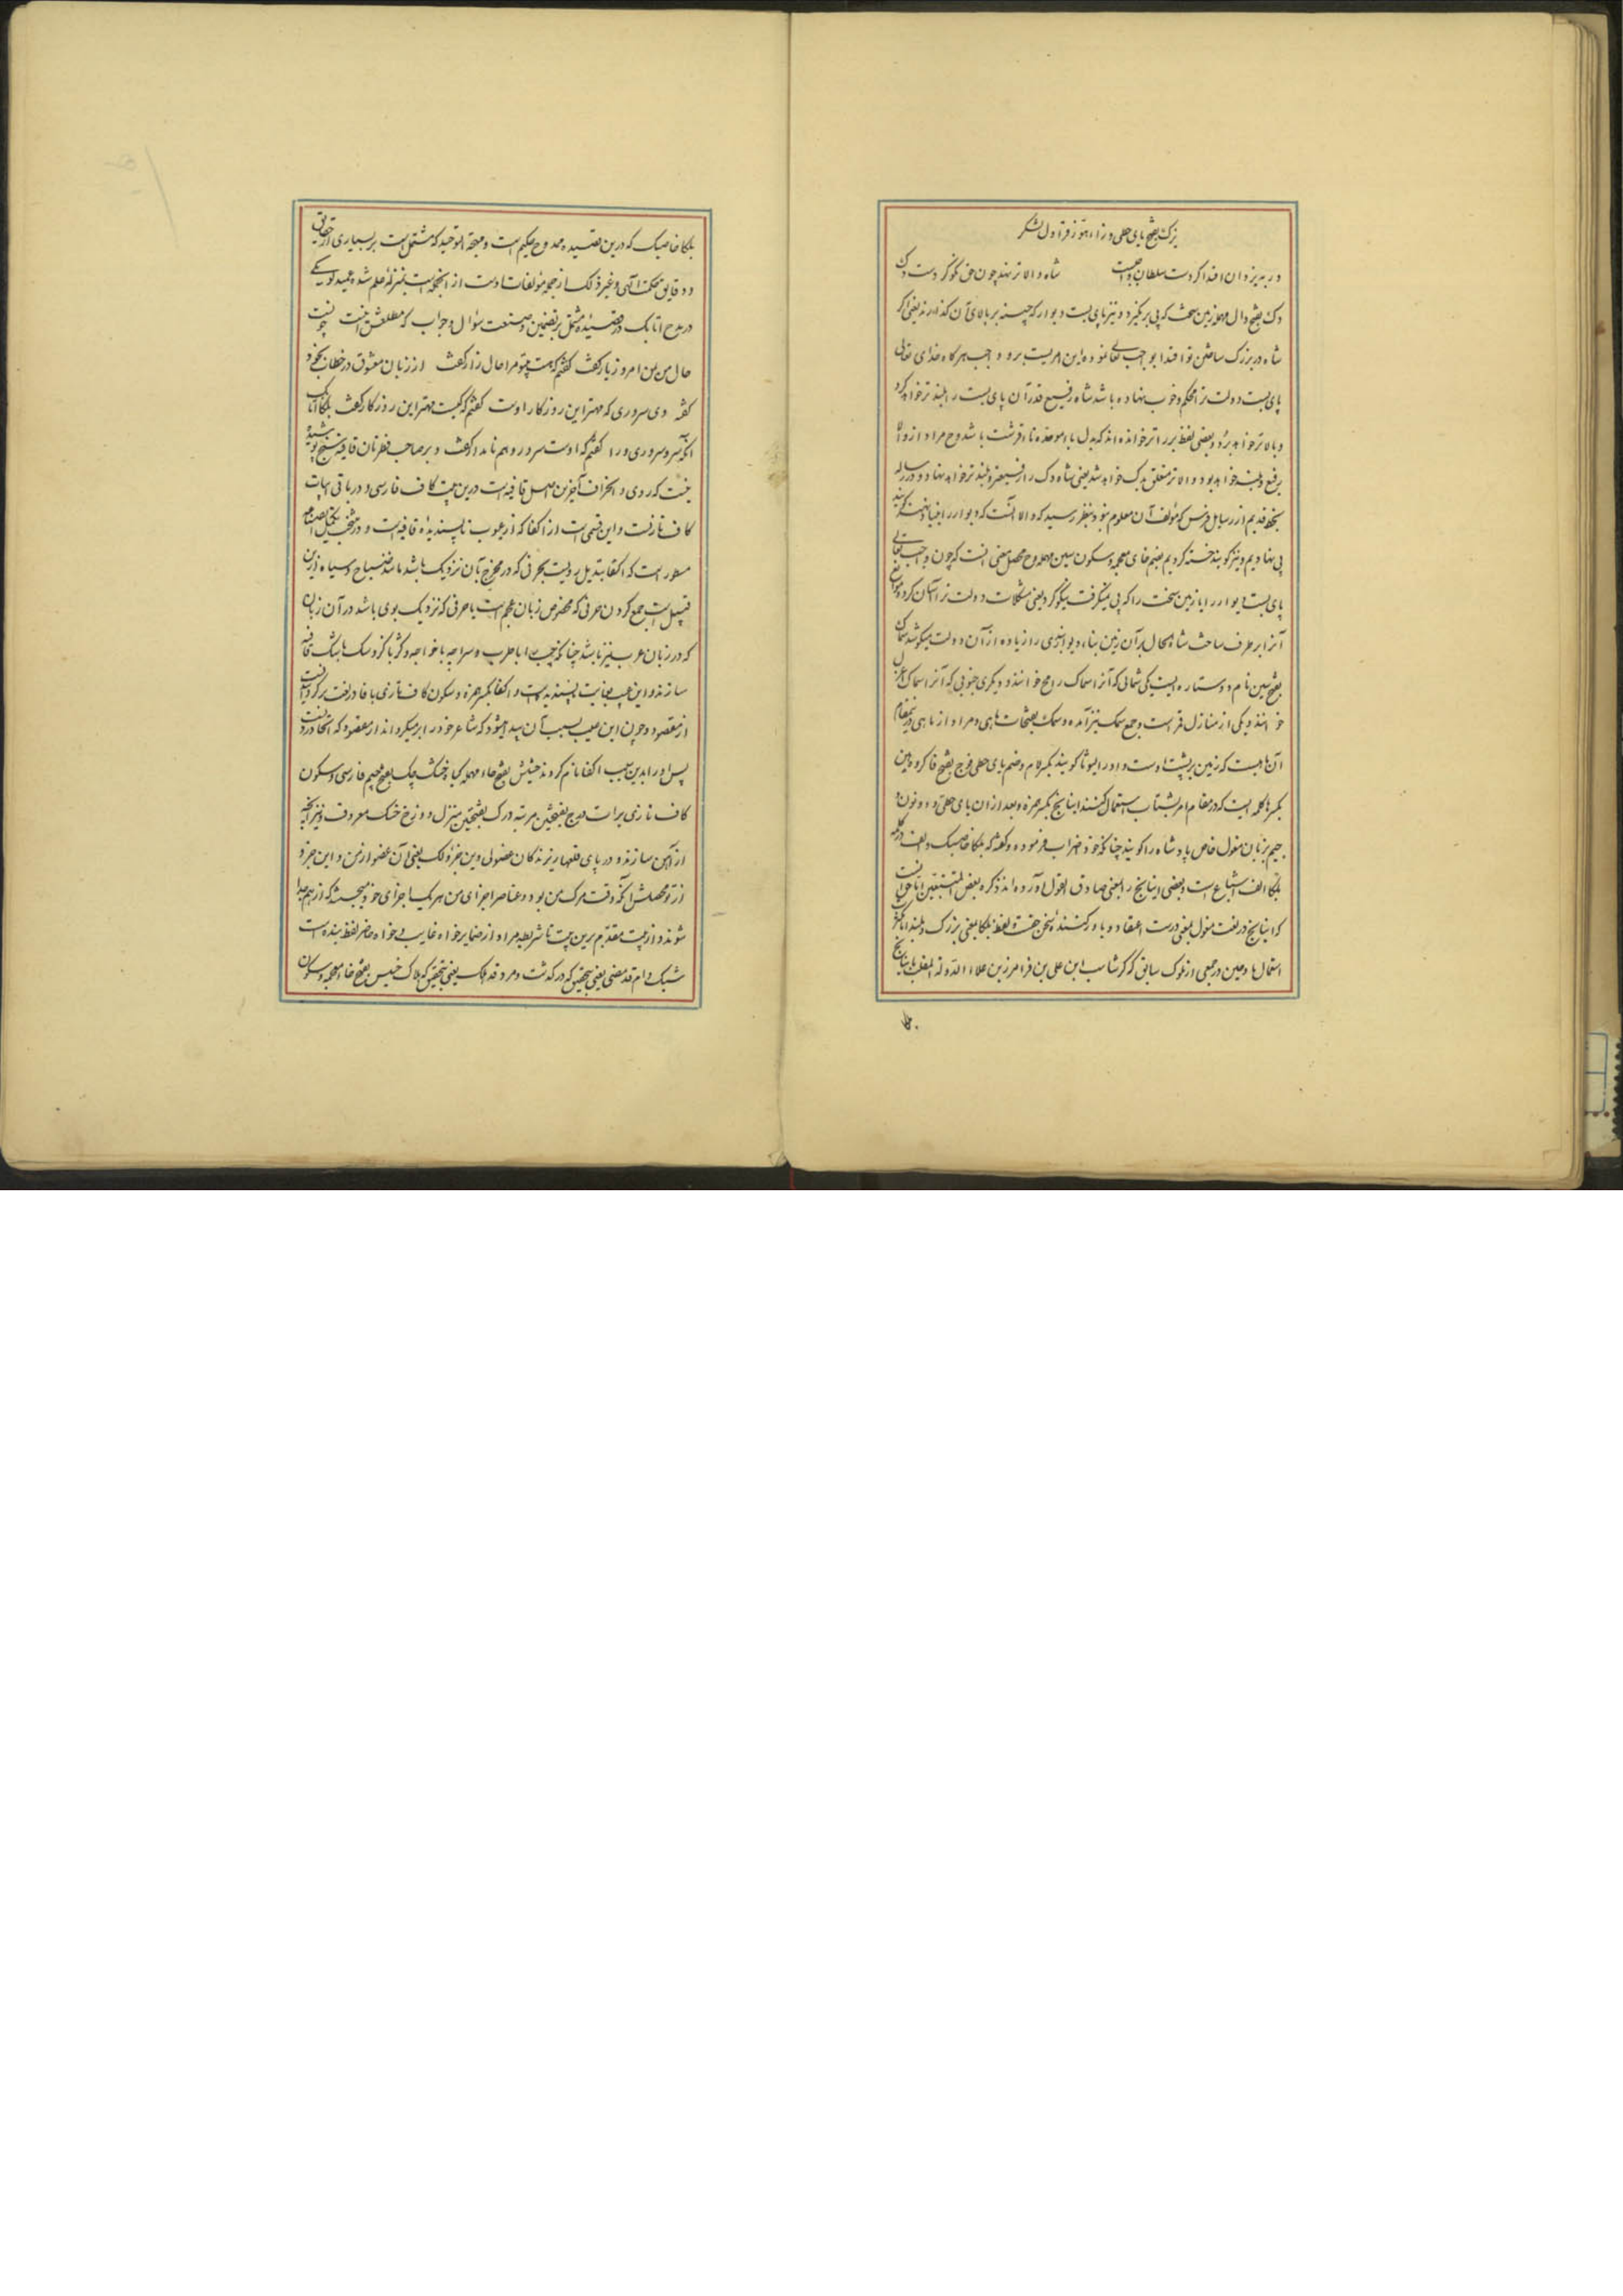 یزک بفتح یای حطی و زاء هوز قراول لشکر
در به یزدان اقتدا کردست سلطان واجبست شاه والاتر نهد چون حق نکو کردست دک
دک بفتح دال مهمله زمین سخت که پی برنگیرد و نیز پای بست دیوار که چینه بر بالای آن گذارند یعنی اگر
شاه در بزرگ ساختن تو اقتدا بواجب تعالی نموده این امریست بر و واجب هرگاه خدای تعالی
پای بست دولت ترا محکم و خوب نهاده باشد شاه رفیع قدر آن پای بست را بلند تر خواهد کرد
و بالاتر خواهد برد و بعضی لفظ برتر خوانده‌اند که بدل باء موحده تا قرشت باشد و مراد از والا
رفیع و بلند خواهد بود و والاتر متعلق بدک خواهد شد یعنی شاه دک را رفیعتر و بلند تر خواهد نهاد و در رساله
بخط قدیم از رسایل فرس که مؤلف آن معلوم نبود بنظر رسید که والا آنست که دیوار را بنیاد نهند گویند
پی نهادیم و نیز گویند خسته کردیم بضم خای معجمه و سکون سین مهمله و محصل معنی آنست که چون واجب تعالی
پای بست دیوار را یا زمین سخت را که پی نمیگرفت نیکو کرد یعنی مشکلات دولت ترا آسان کرد و موانع
آنرا بر طرف ساخت شاه الحال بر آن زمین بنا و دیوانبدی را زیاده از آن دولت میکوشد سماک
بفتح سین نام دو ستاره است یکی شمالی که آنرا سماک رامح خوانند و دیگری جنوبی که آنرا سماک اعزل
خوانند و یکی از منازل قمر است و جمع سمک نیز آمده و سمک بفتحات ماهی و مراد از ماهی درین مقام
آن ماهیست که زمین بر پشت اوست و او را لیوثا گویند بکسر لام و ضم یای حطی فرج بفتح فا کرو و هین
بکسر ها کلمه ایست که در مقام امر بشتاب استعمال کنند اینانج بکسر همزه و بعد از آن یای حطی و دو نون و
جیم بزبان مغول خاص پادشاه را گویند چنانکه خود اضراب فرموده و گفته که بلکا خاصبک و الف در کلمه
بلکا الف اشباع است و بعضی اینانج را بمعنی صادق القول آورده‌اند ذکره بعض المتتبعین اما حق آنست
که اینانج در لغت مغول بمعنی درست اعتقاد و باور کننده سخن حقست و لفظ بلکا بمعنی بزرگ و بلند
استعمال یافته و معین در جمعی از ملوک سابق که گرشاسب ابن علی بن فرامرز بن علاء الدوله الملقب باینانج
بلکا خاصبک که درین قصیده ممدوح حکیم است و مبحة التوحید که مشتملست بر بسیاری از حقایق
و دقایق حکمت الهی و غیر ذلک از جمله مؤلفات اوست از آنجمله است بمنزله علم شده و عمید لویکی
در مدح اتابک در قصیدهٔ مشتمل بر تضمین و صنعت سؤال و جواب که مطلعش اینست چونست
حال من من امروز یار گفت گفتم که هست بیتو مرا حال زار گفت از زبان معشوق در خطاب بخود
گفته دی سروری که مهتر این روزگار اوست گفتم که کیست مهتر این روزگار گفت بلکا اتابک
آنکه سرو سروری ورا گفتم که اوست سرور و هم نامدار گفت و بر صاحب نظرتان قافیه سنج پوشیده
نیست که روی و الحراف آخرین اصل قافیه است درین بیت کاف فارسی و در باقی ابیات
کاف تازیست و این قسمی است از اکفا که از عیوب ناپسندیده قافیه است و در منتخب تکمیل الصناعه
مسطور است که اکفا تبدیل رویست بحرفی که در مخرج بآن نزدیک باشد مانند صباح و سیاه و ازین
قبیل است جمع کردن حرفی که مخصوص زبان عجم است با حرفی که نزدیک بوی باشد در آن زبان
که در زبان عرب نیز باشد چنانکه چپ را با طرب و سراچه با خواجه و گر با گزو سک با شک قافیه
سازند و این عیب بغایت ناپسندیده است و اکفا بکسر همزه و سکون کاف تازی با فا در لغت برگردانیدنست
از مقصود و چون این عیب بسبب آن پیدا میشود که شاعر خود را بر میگرداند از مقصود که اتحاد رویست
پس او را بدین سبب اکفا نام کردند حشیش بفتح حاء مهمله گیاه خشک چک بفتح جیم فارسی و سکون
کاف تازی برات درج بفتحتین مرتبه درک بفتحتین منزل دوزخ خسک معروف و نیز آنچه
از آهن سازند و در پای قلعها ریزند کان عضو لی و ین جزؤ لک یعنی آن عضو از من و این جزو
از تو محصلش آنکه وقت مرگ من بود و عناصر اجزای من هر یک اجزای خود میجست که از هم جدا
شوند و از بیت مقدم برین بیت تا شریطه مراد از ضمایر خواه غایب و خواه حاضر لفظ بنده است
شبک دام قد مضی یعنی بتحقیق که درگذشت و مرد قد هلک یعنی بتحقیق که هلاک خیس بفتح خاء معجمه و سکون